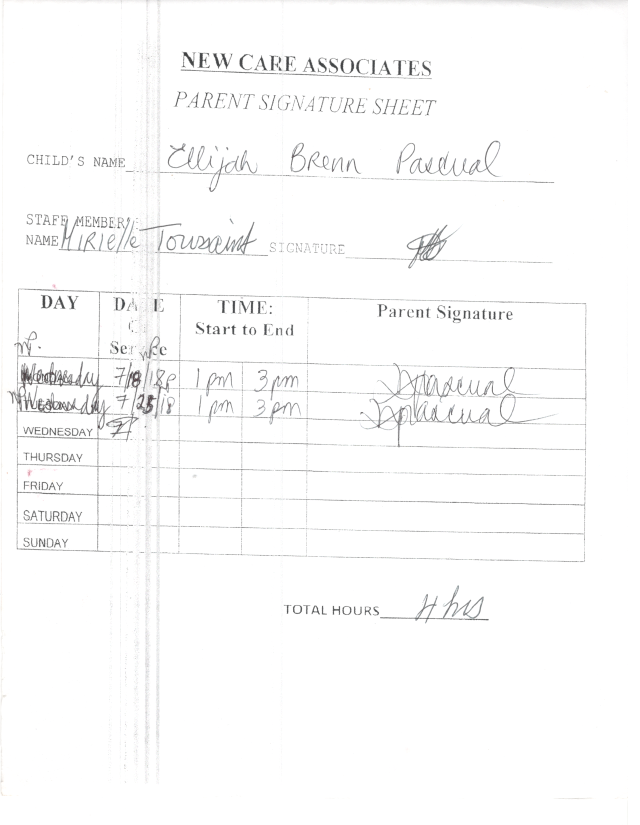 NEW CARE ASSOCIATES
PARENT SIGNATURE SHEET
CHILD'S NAME Ellijah Brenn Pascual
STAFF MEMBER'S
NAME Mirielle Toussaint SIGNATURE
DAY DATE TIME: Parent Signature
Of Start to End
Service
Wednesday 7/18/18 1pm 3pm
Wednesday 7/25/18 1pm 3pm
WEDNESDAY 7/
THURSDAY
FRIDAY
SATURDAY
SUNDAY
TOTAL HOURS 4 hrs